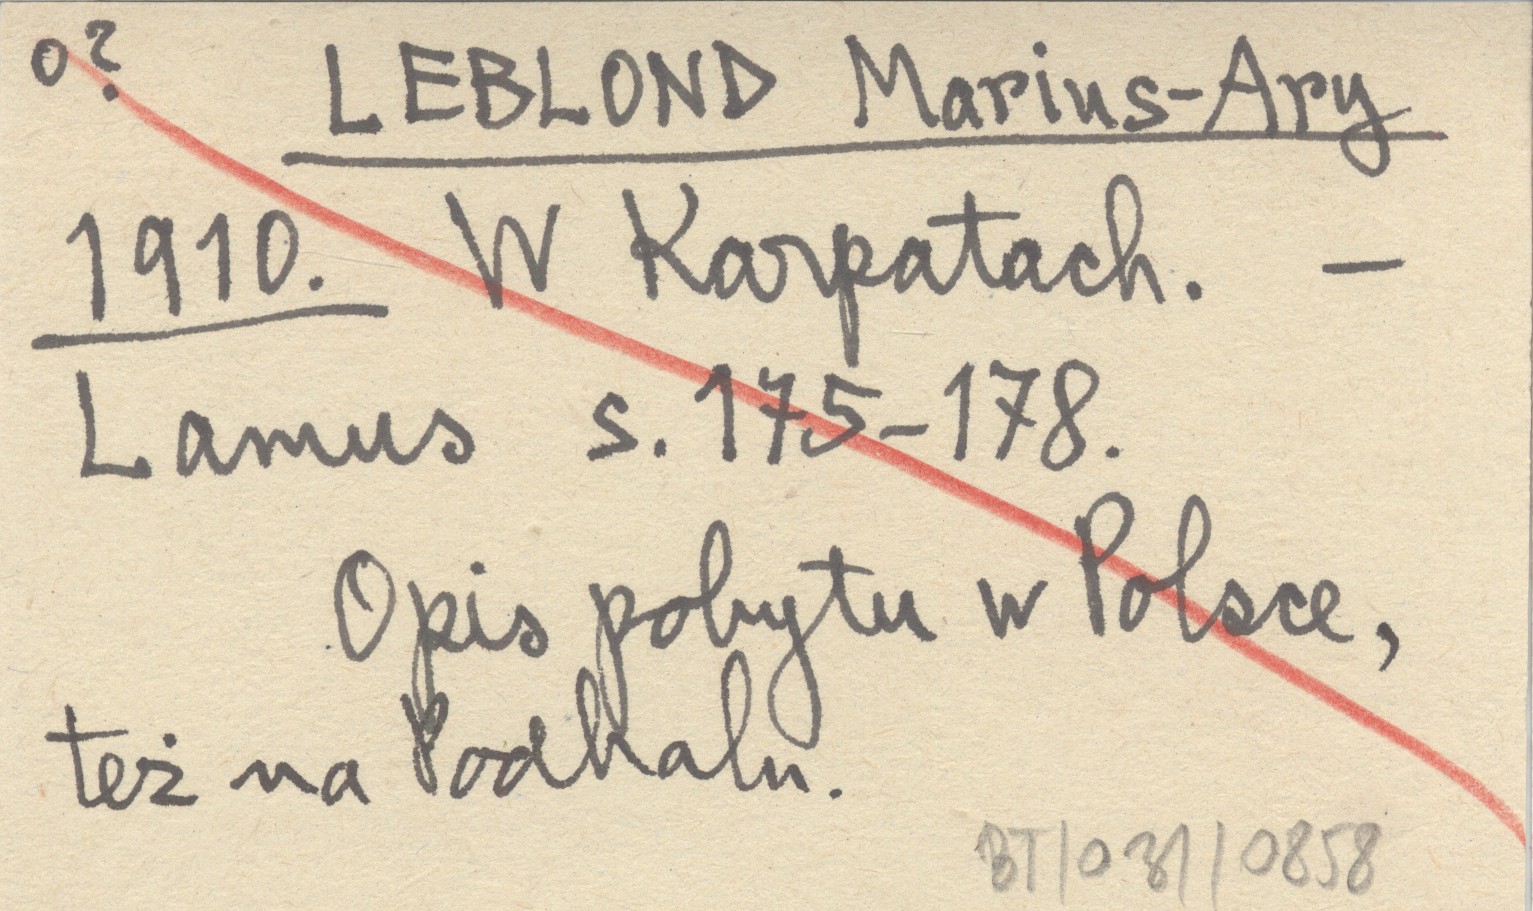 o?
LEBLOND Marius-Ary
1910. W Karpatach. —
Lamus s. 175-178.
Opis pobytu w Polsce,
też na Podhalu.
BT/031/0858